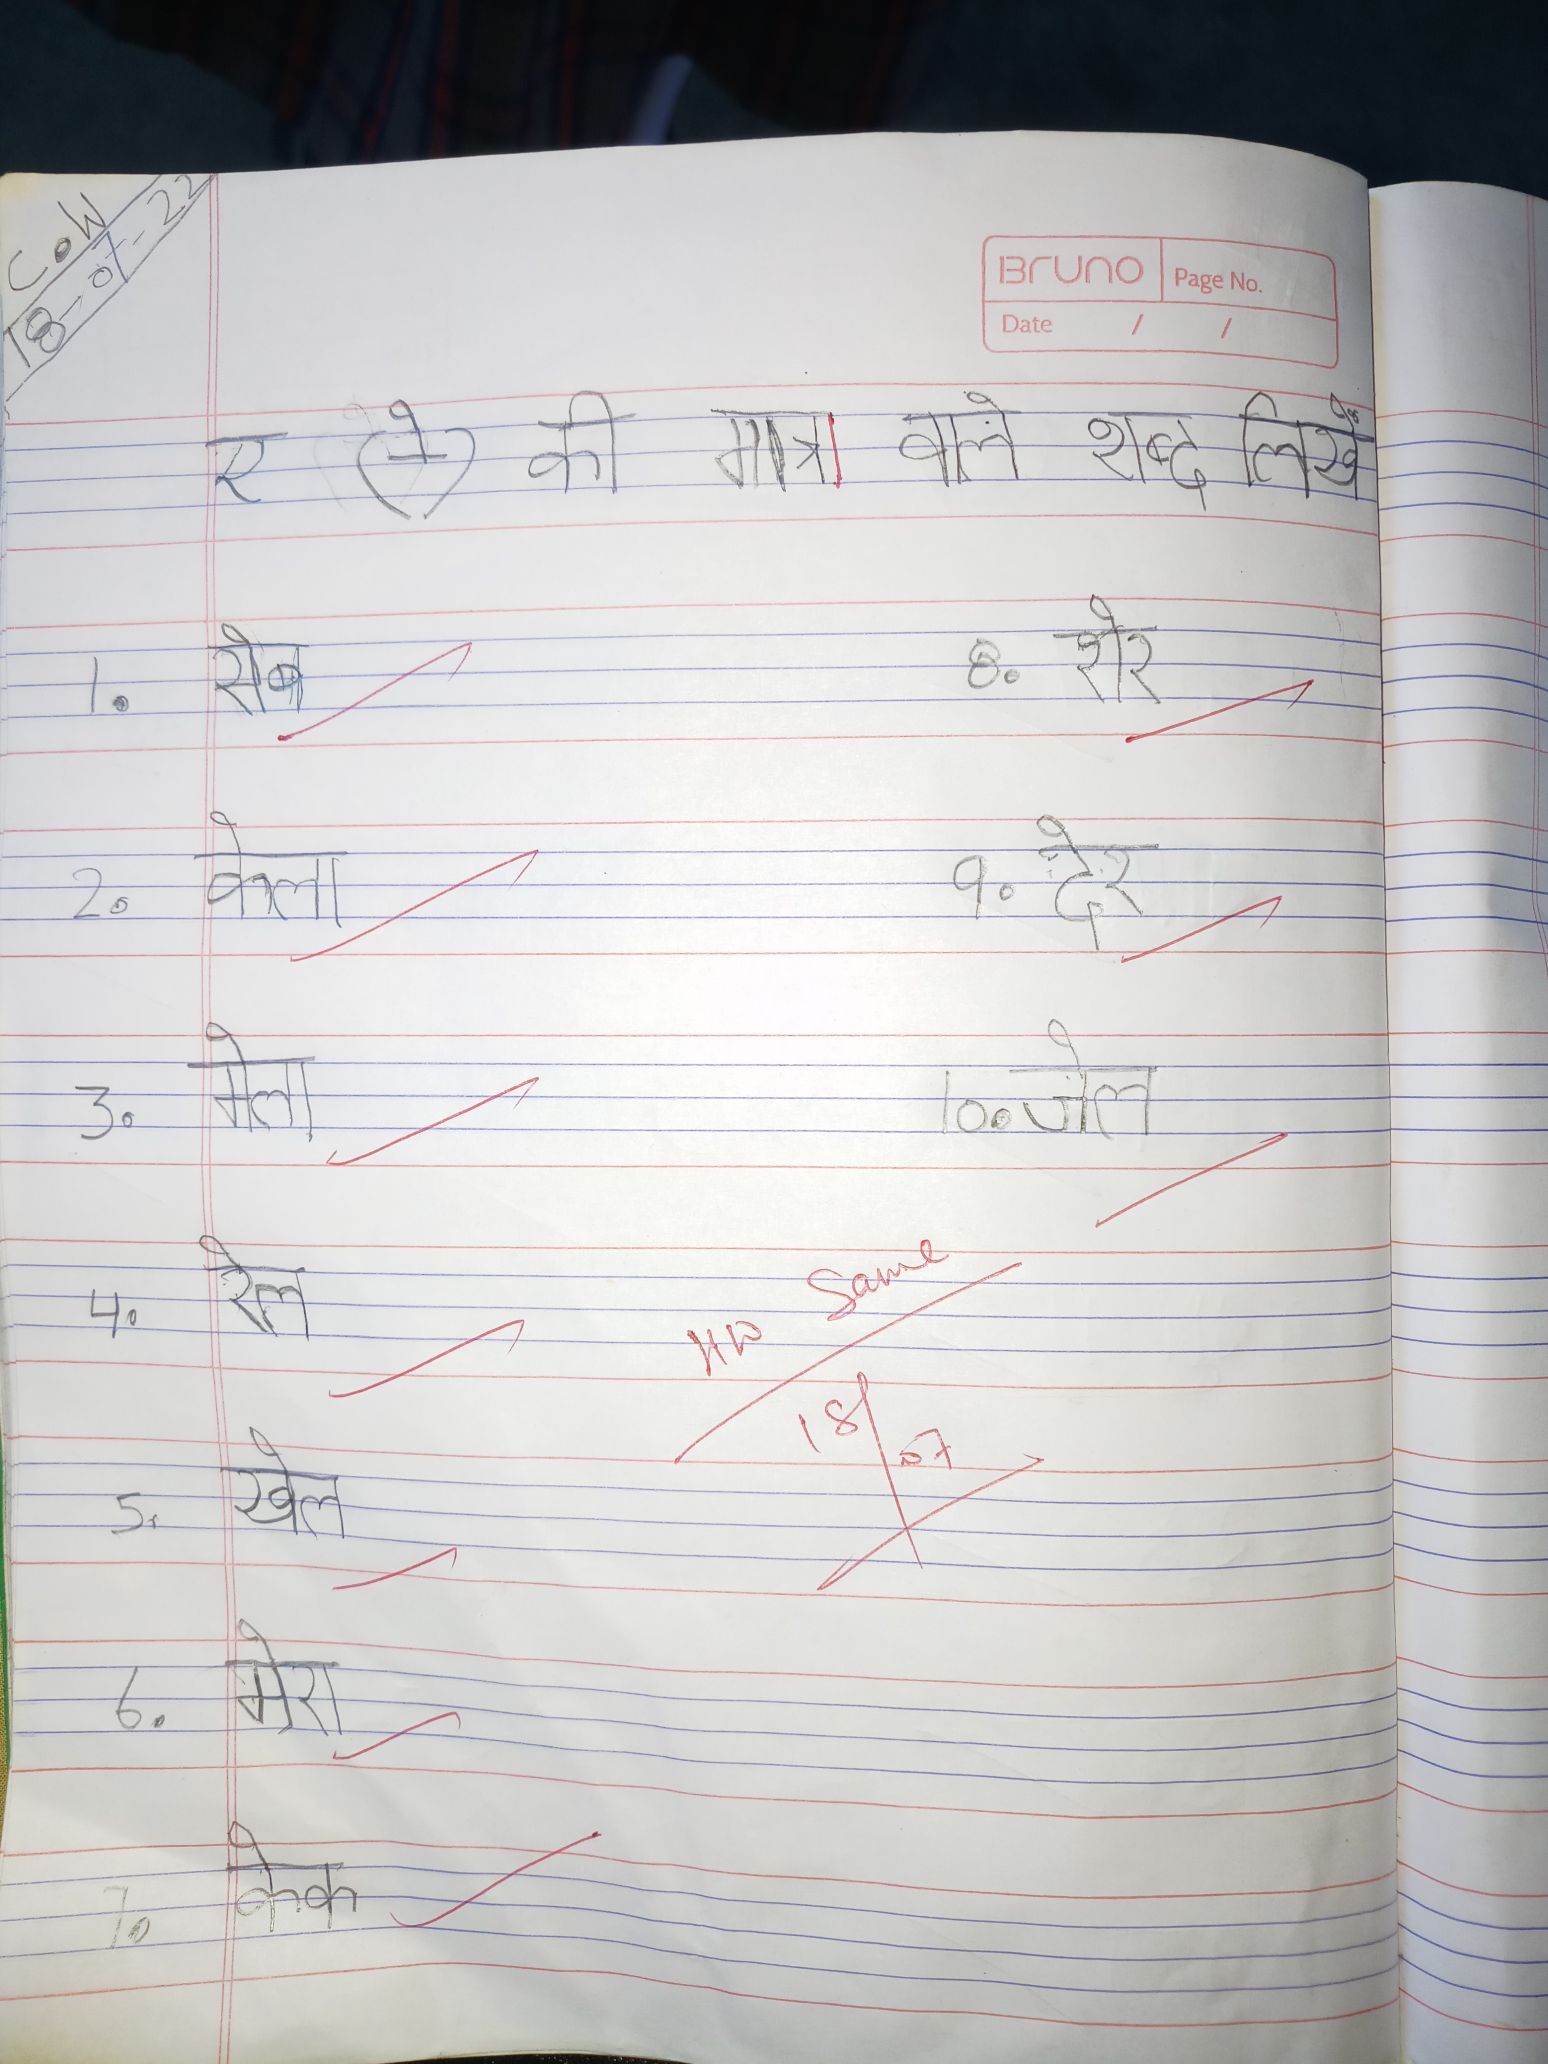 C.W
18-07-22
Bruno Page No.
Date / /
ए (े) की मात्रा वाले शब्द लिखें
1. सेब
2. केला
3. मेला
4. रेल
5. खेल
6. मेरा
7. केक
8. शेर
9. देर
10. जेल
HW Same
18/07